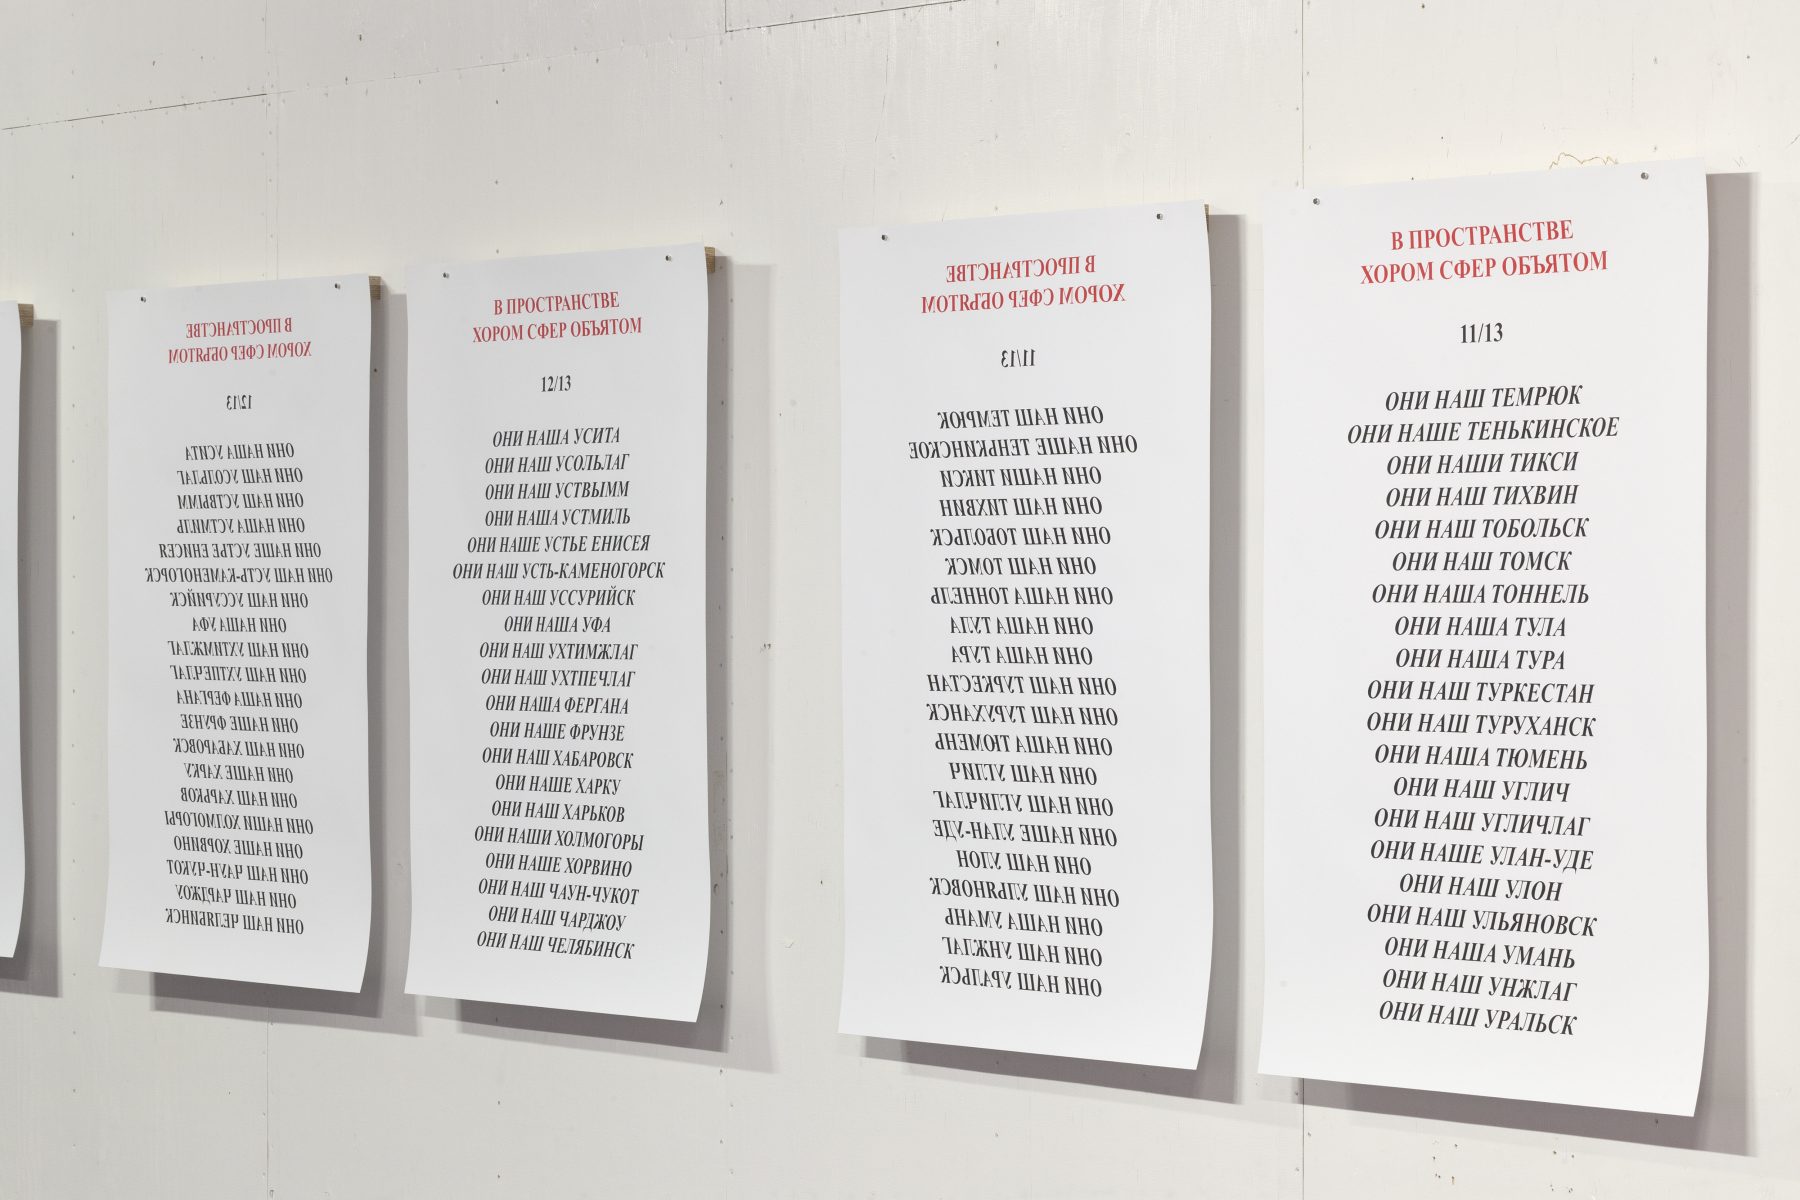 В ПРОСТРАНСТВЕ
ХОРОМ СФЕР ОБЪЯТОМ
12/13
ОНИ НАША УСИТА
ОНИ НАШ УСОЛЬЛАГ
ОНИ НАШ УСТВЫММ
ОНИ НАША УСТМИЛЬ
ОНИ НАШЕ УСТЬЕ ЕНИСЕЯ
ОНИ НАШ УСТЬ-КАМЕНОГОРСК
ОНИ НАШ УССУРИЙСК
ОНИ НАША УФА
ОНИ НАШ УХТИМЖЛАГ
ОНИ НАШ УХТПЕЧЛАГ
ОНИ НАША ФЕРГАНА
ОНИ НАШЕ ФРУНЗЕ
ОНИ НАШ ХАБАРОВСК
ОНИ НАШЕ ХАРКУ
ОНИ НАШ ХАРЬКОВ
ОНИ НАШИ ХОЛМОГОРЫ
ОНИ НАШЕ ХОРВИНО
ОНИ НАШ ЧАУН-ЧУКОТ
ОНИ НАШ ЧАРДЖОУ
ОНИ НАШ ЧЕЛЯБИНСК
В ПРОСТРАНСТВЕ
ХОРОМ СФЕР ОБЪЯТОМ
12/13
ОНИ НАША УСИТА
ОНИ НАШ УСОЛЬЛАГ
ОНИ НАШ УСТВЫММ
ОНИ НАША УСТМИЛЬ
ОНИ НАШЕ УСТЬЕ ЕНИСЕЯ
ОНИ НАШ УСТЬ-КАМЕНОГОРСК
ОНИ НАШ УССУРИЙСК
ОНИ НАША УФА
ОНИ НАШ УХТИМЖЛАГ
ОНИ НАШ УХТПЕЧЛАГ
ОНИ НАША ФЕРГАНА
ОНИ НАШЕ ФРУНЗЕ
ОНИ НАШ ХАБАРОВСК
ОНИ НАШЕ ХАРКУ
ОНИ НАШ ХАРЬКОВ
ОНИ НАШИ ХОЛМОГОРЫ
ОНИ НАШЕ ХОРВИНО
ОНИ НАШ ЧАУН-ЧУКОТ
ОНИ НАШ ЧАРДЖОУ
ОНИ НАШ ЧЕЛЯБИНСК
В ПРОСТРАНСТВЕ
ХОРОМ СФЕР ОБЪЯТОМ
11/13
ОНИ НАШ ТЕМРЮК
ОНИ НАШЕ ТЕНЬКИНСКОЕ
ОНИ НАШИ ТИКСИ
ОНИ НАШ ТИХВИН
ОНИ НАШ ТОБОЛЬСК
ОНИ НАШ ТОМСК
ОНИ НАША ТОННЕЛЬ
ОНИ НАША ТУЛА
ОНИ НАША ТУРА
ОНИ НАШ ТУРКЕСТАН
ОНИ НАШ ТУРУХАНСК
ОНИ НАША ТЮМЕНЬ
ОНИ НАШ УГЛИЧ
ОНИ НАШ УГЛИЧЛАГ
ОНИ НАШЕ УЛАН-УДЕ
ОНИ НАШ УЛОН
ОНИ НАШ УЛЬЯНОВСК
ОНИ НАША УМАНЬ
ОНИ НАШ УНЖЛАГ
ОНИ НАШ УРАЛЬСК
В ПРОСТРАНСТВЕ
ХОРОМ СФЕР ОБЪЯТОМ
11/13
ОНИ НАШ ТЕМРЮК
ОНИ НАШЕ ТЕНЬКИНСКОЕ
ОНИ НАШИ ТИКСИ
ОНИ НАШ ТИХВИН
ОНИ НАШ ТОБОЛЬСК
ОНИ НАШ ТОМСК
ОНИ НАША ТОННЕЛЬ
ОНИ НАША ТУЛА
ОНИ НАША ТУРА
ОНИ НАШ ТУРКЕСТАН
ОНИ НАШ ТУРУХАНСК
ОНИ НАША ТЮМЕНЬ
ОНИ НАШ УГЛИЧ
ОНИ НАШ УГЛИЧЛАГ
ОНИ НАШЕ УЛАН-УДЕ
ОНИ НАШ УЛОН
ОНИ НАШ УЛЬЯНОВСК
ОНИ НАША УМАНЬ
ОНИ НАШ УНЖЛАГ
ОНИ НАШ УРАЛЬСК